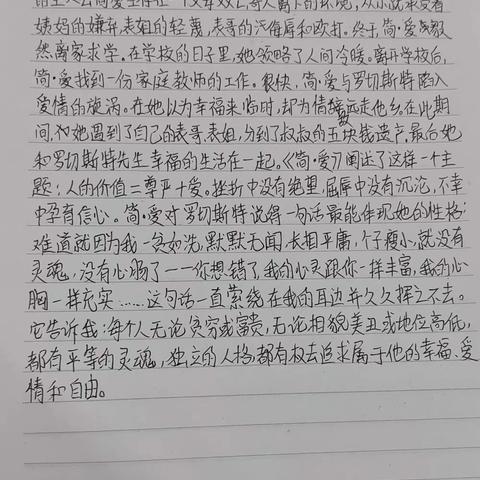 姨妈的嫌弃,表姐的轻蔑,表哥的污侮辱和欧打。终于,简·爱毅
然离家求学。在学校的日子里,她领略了人间冷暖。离开学校后,
简·爱找到一份家庭教师的工作。很快,简·爱与罗切斯特陷入
爱情的旋涡。在她以为幸福来临时,却为情远走他乡。在此期
间,她遇到了自己的表哥、表姐,分到了叔叔的五块钱遗产,最后她
和罗切斯特先生幸福的生活在一起。《简·爱》阐述了这样一个主
题:人的价值=尊严+爱。挫折中没有绝望,屈辱中没有沉沦,不幸
中孕育信心。简·爱对罗切斯特说得一句话最能体现她的性格:
难道就因为我一贫如洗,默默无闻,长相平庸,个子瘦小,就没有
灵魂,没有心肠了——你想错了,我的心灵跟你一样丰富,我的心
胸一样充实……这句话一直萦绕在我的耳边并久久挥之不去。
它告诉我:每个人无论贫穷或富贵,无论相貌美丑或地位高低,
都有平等的灵魂,独立的人格,都有权去追求属于他的幸福、爱
情和自由。